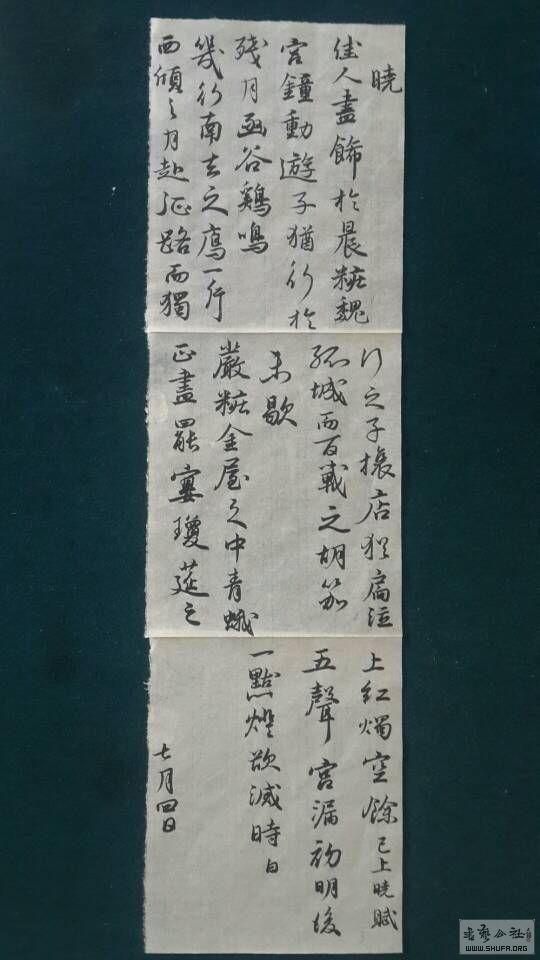 暁
佳人盡餝於晨粧魏
宮鐘動遊子猶行於
残月函谷鶏鳴
幾行南去之鴈一片
西傾之月赴征路而獨
行之子旅店猶扃泣
孤城而百戦之胡笳
未歇
嚴粧金屋之中青蛾
正畫罷宴瓊莚之
上紅燭空餘 已上暁賦
五聲宮漏初明後
一點燈欲滅時 白
七月四日
书艺公社
WWW.SHUFA.ORG